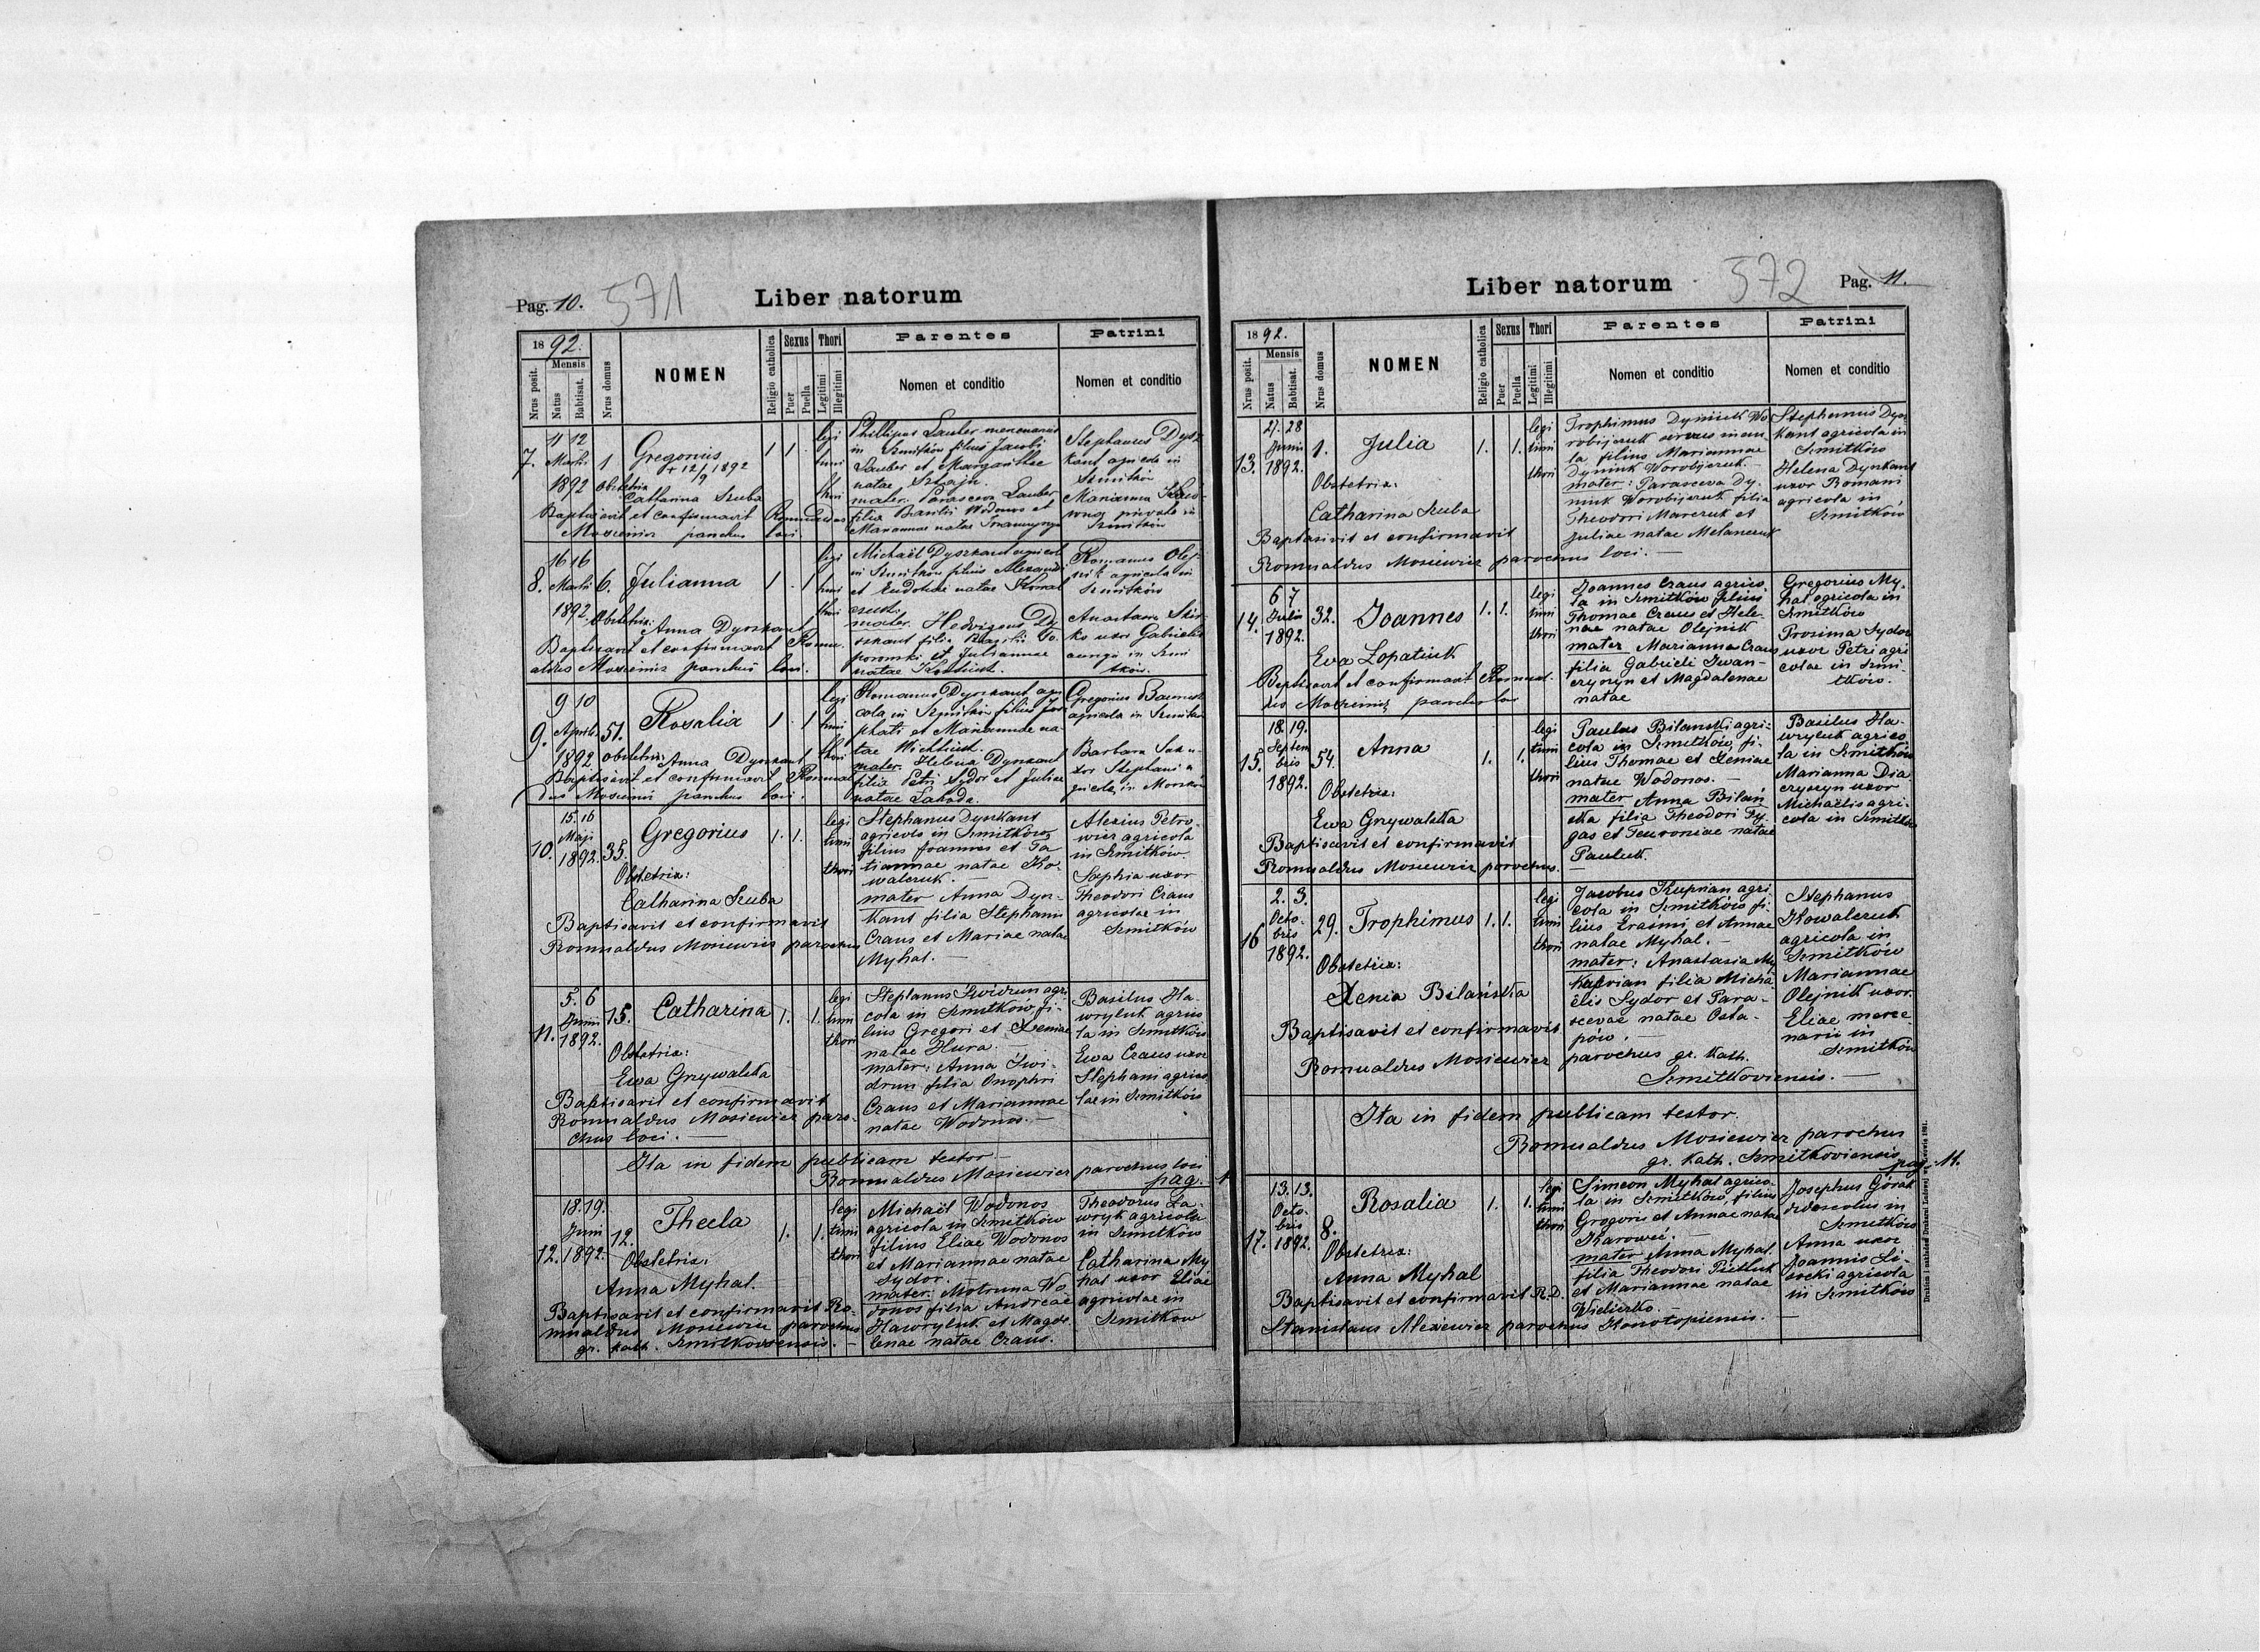 Pag. 10.
571
Liber natorum
1892.
Nrus posit.
Mensis
Natus
Babtisat.
Nrus domus
NOMEN
Religio catholica
Sexus
Puer
Puella
Thori
Legitimi
Illegitimi
Parentes
Nomen et conditio
Patrini
Nomen et conditio
7.
4 12
Martii
1892
1
Gregorius
+ 12/9 1892
Obstetrix
Catharina Szuba
Baptisavit et confirmavit Romualdus
Mosiewicz parochus loci.
1 1
legi
timi
thori
Phillipus Lauber mercenarius
in Szmitków filius Jacobi
Lauber et Margarithae
natae
mater. Parasceva Lauber
filia Basilii Wodonos et
Mariannae natae
Stephanus Dysz
kant agricola in
Szmitków
Marianna
in
Szmitków
8.
16 16
Martii
1892
6.
Julianna
Obstetrix:
Anna Dyszkant
Baptisavit et confirmavit Romu
aldus Mosiewicz parochus loci.
1 1
legi
timi
thori
Michaël Dyszkant agricola
in Szmitków filius Alexandri
et Eudoxiae natae Kowal
czuk.
mater. Hedvigens Dy
szkant filia Basilii To
porowski et Juliannae
natae
Romanus Olej
nik agricola in
Szmitków
Anastasia
uxor Gabrielis
in Szmi
tków.
9.
9 10
Aprili
1892
51.
Rosalia
Obstetrix: Anna Dyszkant
Baptisavit et confirmavit Romual
dus Mosiewicz parochus loci.
1 1
legi
timi
thori
Romanus Dyszkant agri
cola in Szmitków filius Jos
phati et Mariannae na
tae
mater. Helena Dyszkant
filia Petri Sydor et Juliae
natae Lahoda.
Gregorius
agricola in Szmitków
Barbara
xor Stephani a
gricola in
10.
15. 16
Maji
1892.
35.
Gregorius
Obstetrix:
Catharina Szuba
Baptisavit et confirmavit
Romualdus Mosiewicz parochus
1. 1.
legi
timi
thori
Stephanus Dyszkant
agricola in Szmitków
filius Joannes et Ta
tiannae natae Ko-
walczuk. —
mater Anna Dysz-
kant filia Stephani
Craus et Mariae natae
Myhal. —
Alexius Petro-
wicz agricola
in Szmitków.
Sophia uxor
Theodori Craus
agricolae in
Szmitków
11.
5. 6
Junii
1892.
15.
Catharina
Obstetrix:
Ewa Grzywalska
Baptisavit et confirmavit
Romualdus Mosiewicz paro-
chus loci. —
1. 1.
legi
timi
thori
Stephanus Swidrun agri
cola in Szmitków fi-
lius Gregori et Xeniae
natae Hura. —
mater: Anna Swi-
drun filia Onophri
Craus et Mariannae
natae Wodonos. —
Basilus Ha-
wryluk agrico
la in Szmitków
Ewa Craus uxor
Stephani agrico
lae in Szmitków
Ita in fidem publicam testor —
Romualdus Mosiewicz parochus loci
pag.
12.
18. 19.
Junii
1892.
12.
Thecla
Obstetrix:
Anna Myhal. —
Baptisavit et confirmavit Ro-
mualdus Mosiewicz parochus
gr. kath. Szmitkoviensis. —
1. 1.
legi
timi
thori
Michaël Wodonos
agricola in Szmitków
filius Eliae Wodonos
et Mariannae natae
Sydor. —
mater: Motruna Wo
donos filia Andreae
Hawryluk et Magda
lenae natae Craus.
Theodorus La-
wryk agricola
in Szmitków
Catharina My
hal uxor Eliae
agricolae in
Szmitków
Liber natorum
572
Pag. 11.
1892.
Nrus posit.
Mensis
Natus
Babtisat.
Nrus domus
NOMEN
Religio catholica
Sexus
Puer
Puella
Thori
Legitimi
Illegitimi
Parentes
Nomen et conditio
Patrini
Nomen et conditio
13.
4. 28
Junii
1892.
1.
Julia
Obstetrix:
Catharina Szuba
Baptisivit et confirmavit
Romualdus Mosiewicz parochus loci. —
1. 1.
legi
timi
thori
Trophimus Dymiuk Wo
robijczuk
la filius Mariannae
Dymiuk Worobijczuk. —
mater: Parasceva Dy-
miuk Worobijczuk filia
Theodori Marczuk et
Juliae natae Melanczuk
Stephanus Dysz
kant agricola in
Szmitków
Helena Dyszkant
uxor Romani
agricola in
Szmitków
14.
6 7
Julii
1892.
32.
Joannes
Ewa Lopatiuk
Baptisavit et confirmavit Romual.
dus Mosiewicz parochus loci
1. 1.
legi
timi
thori
Joannes Craus agrico
la in Szmitków filius
Thomae Craus et Hele-
nae natae Olejnik
mater Marianna Craus
filia Gabrieli Iwan-
czyszyn et Magdalenae
natae
Gregorius My.
hal agricola in
Szmitków
Prosima Sydor
uxor Petri agri
colae in Szmi-
tków.
15.
18. 19.
Septem
bris
1892.
54.
Anna
Obstetrix:
Ewa Grzywalska
Baptisavit et confirmavit
Romualdus Mosiewicz parochus. —
1. 1.
legi
timi
thori
Paulus Bilanski agri-
cola in Szmitków, fi-
lius Thomae et Xeniae
natae Wodonos. —
mater Anna Bilań
ska filia Theodori Py-
gas et Feuroniae natae
Pauluk.
Basilus Ha-
wryluk agrico
la in Szmitków
Marianna Dia
czyszyn uxor
Michaëlis agri-
cola in Szmitków
16
2. 3.
Octo-
bris
1892.
29.
Trophimus
Obstetrix:
Xenia Bilańska
Baptisavit et confirmavit
Romualdus Mosiewicz parochus gr. kath.
Szmitkoviensis. —
1. 1.
legi
timi
thori
Jacobus Kuprian agri
cola in Szmitków fi-
lius Erasmi et Annae
natae Myhal. —
mater: Anastasia
Kuprian filia Micha
ëlis Sydor et Para-
scevae natae Osta-
pów. —
Stephanus
Kowalczuk
agricola in
Szmitków
Mariannae
Olejnik uxor
Eliae merce-
narii in
Szmitków
Ita in fidem publicam testor.
Romualdus Mosiewicz parochus
gr. kath. Szmitkoviensis
pag. 11.
17.
13. 13.
Octo-
bris
1892.
8.
Rosalia
Obstetrix:
Anna Myhal
Baptisavit et confirmavit R.D.
Stanislaus Alexiewicz parochus Honotopiensis. —
1. 1.
legi
timi
thori
Simeon Myhal agrico-
la in Szmitków, filius
Gregorii et Annae natae
Karowić. —
mater Anna Myhal
filia Theodori Pietluk
et Mariannae natae
Wieliczko. —
Josephus Górak
didascalus in
Szmitków
Anna uxor
Joannis Li-
socki agricola
in Szmitków